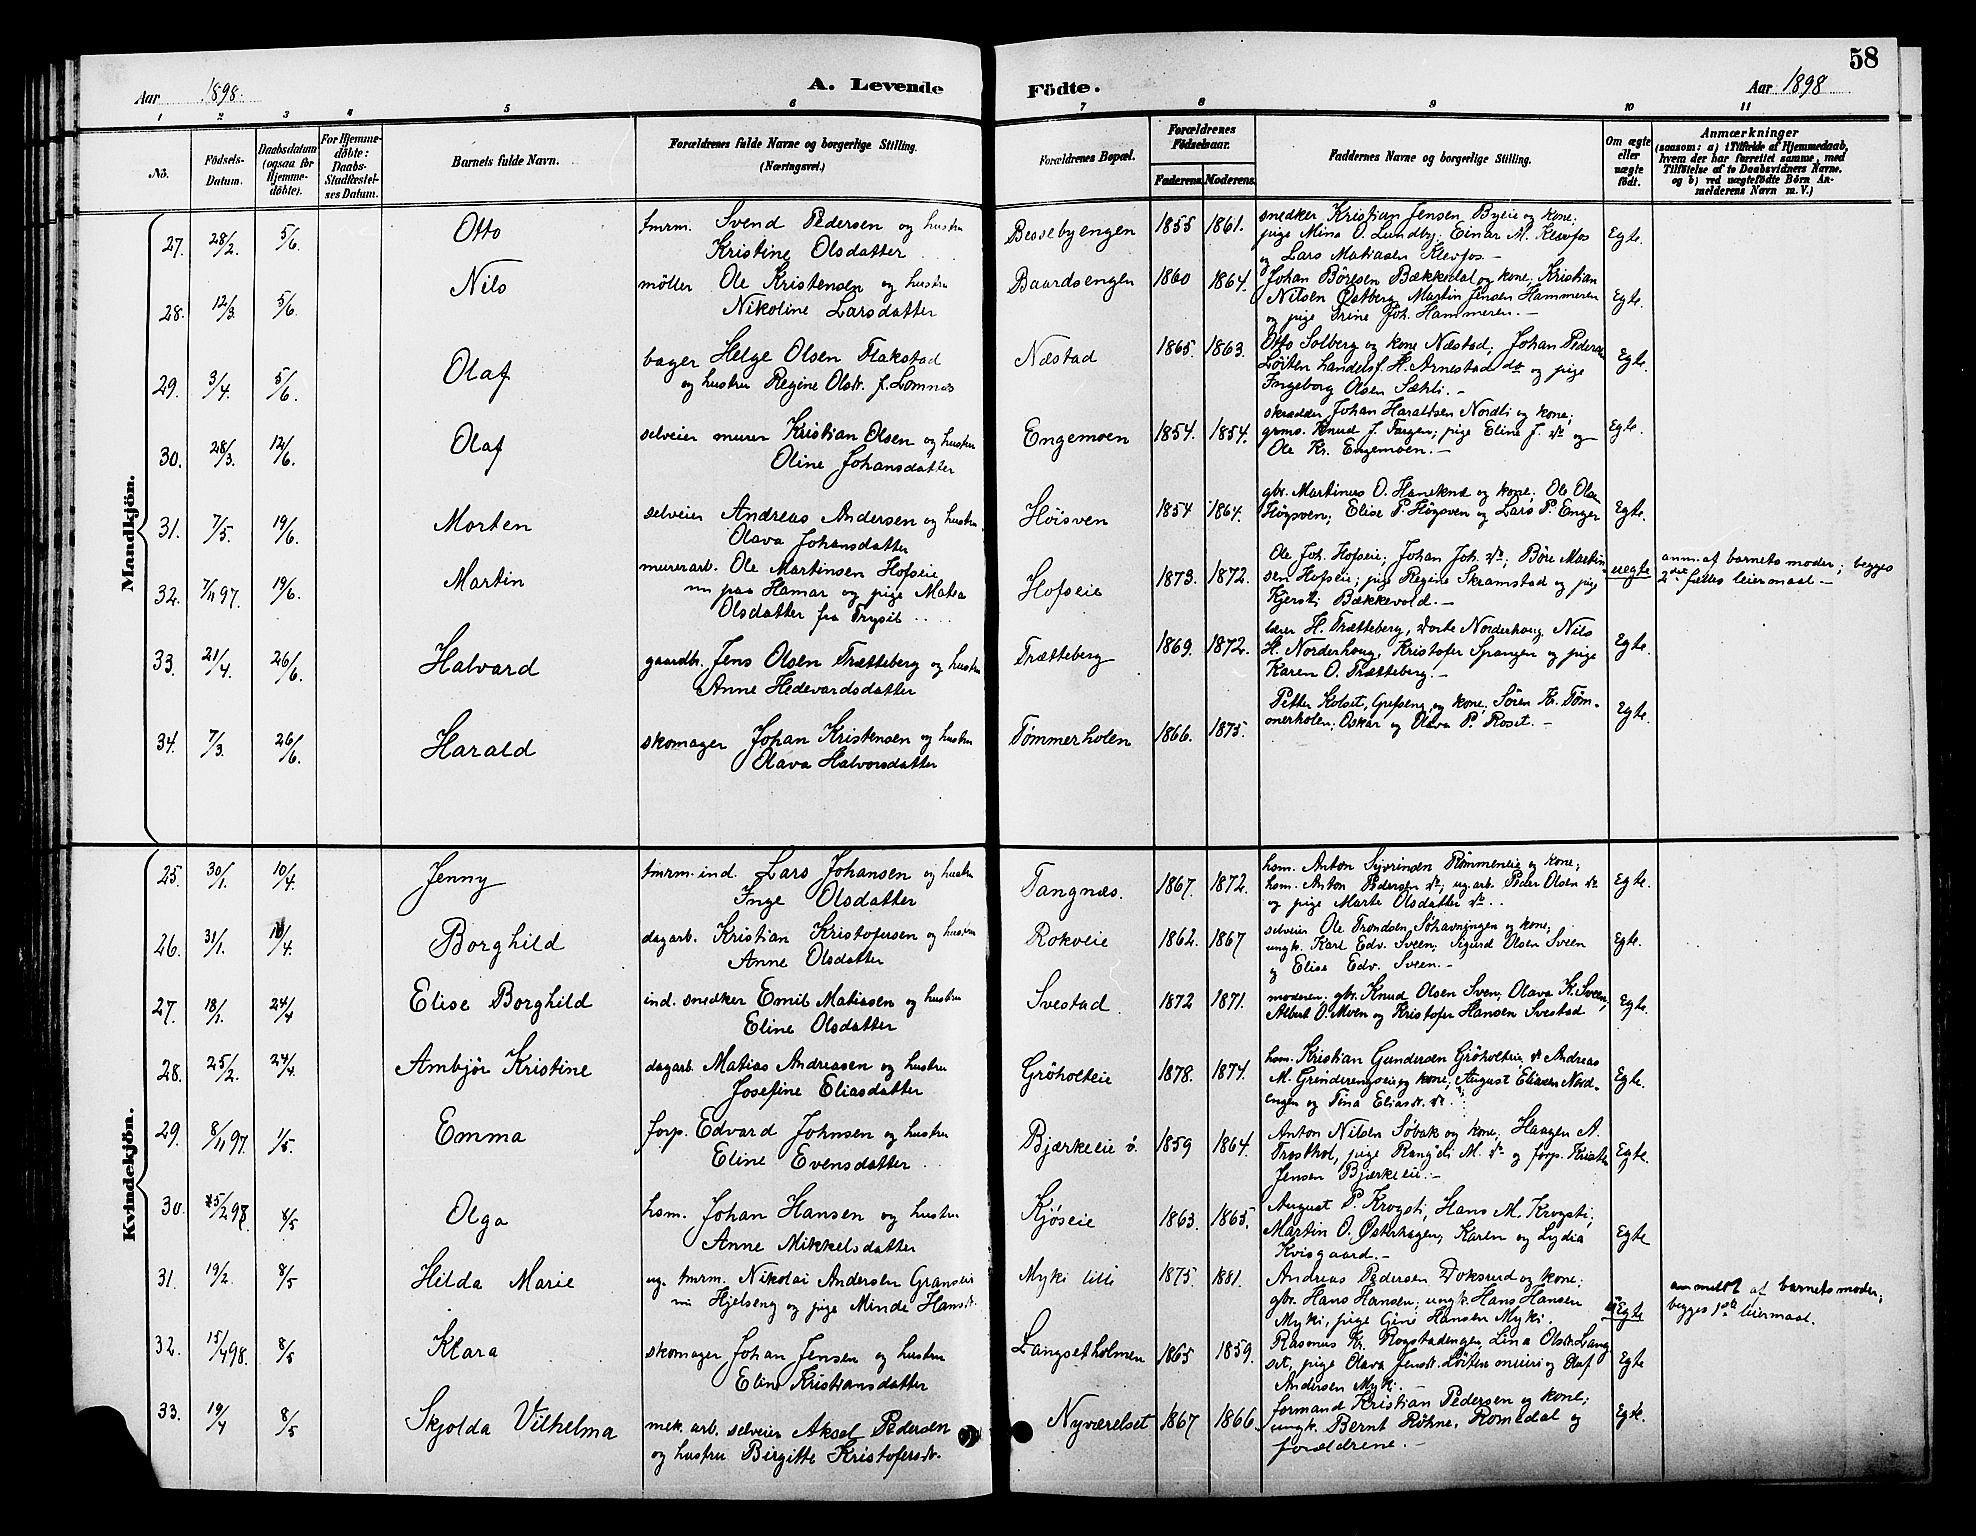 58
Aar 1898. A. Levende Födte. Aar 1898
1 2 3 4 5 6 7 8 9 10 11
No. Födsels-Datum. Daabsdatum (ogsaa for Hjemme-döbte). For Hjemme-döbte: Daabs-Stadfæstel-ses Datum. Barnets fulde Navn. Forældrenes fulde Navne og borgerlige Stilling. (Næringsvei.) Forældrenes Bopæl. Forældrenes Födselsaar. Faderens. Moderens. Faddernes Navne og borgerlige Stilling. Om ægte eller uægte födt. Anmærkninger (saasom: a) i Tilfælde af Hjemmedaab, hvem der har forrettet samme, med Tilföielse af to Daabsvidners Navne, og b) ved uægtefödte Börn An-melderens Navn m. V.)
Mandkjön.
27. 28/2. 5/6. Otto tmrm. Svend Pedersen og hustru
Kristine Olsdatter
Bessebyengen 1855 1861. snedker Kristian Jensen Byeie og kone;
pige Mina O. Lundby; Einar M. Klevfos
og Lars Matiasen Klevfos.— Egte.
28. 12/3. 5/6. Nils möller Ole Kristensen og hustru
Nikoline Larsdatter
Baardsengen 1860 1864. Johan Böresen Bækkedal og kone; Kristian
Nilsen Østberg, Martin Jensen Hammeren
og pige Trine Joh. Hammeren.— Egte.
29. 3/4. 5/6. Olaf bager Helge Olsen Flakstad
og hustru Regine Olsdr. f. Lomnæs
Næstad 1865. 1863. Otto Solberg og kone Næstad; Johan Pedersen
Löiten handelsf. H. Arnestad do og pige
Ingeborg Olsen Sæhli.— Egte.
30. 28/3. 12/6. Olaf selveier murer Kristian Olsen og hustru
Oline Johansdatter
Engemoen 1854. 1854. skrædder Johan Haraldsen Nordli og kone;
grms. Knud J. Targen; pige Eline J. do og
Ole Kr. Engemoen.— Egte.
31. 7/5. 19/6. Morten selveier Andreas Andersen og hustru
Olava Johansdatter
Höisven 1854 1864. gbr. Martinus O. Haneknæ og kone; Ole Olsen
Högsven; Elise P. Högsven og Lars P. Enger Egte.
32. 7/11 97. 19/6. Martin murerarb. Ole Martinsen Hofseie
nu paa Hamar og pige Matea
Olsdatter fra Trysil
Hofseie 1873. 1872. Ole Joh. Hofseie; Johan Joh. do; Böre Martin-
sen Hofseie; pige Regine Skramstad og pige
Kjersti Bækkevold.— uegte anm. af barnets moder; begges
2det fælles leiermaal—
33. 21/4. 26/6. Halvard gaardbr. Jens Olsen Trætteberg og hustru
Anne Hedevardsdatter
Trætteberg 1869. 1872. lærer H. Trætteberg, Dorte Norderhoug, Nils
H. Norderhoug, Kristofer Spangen og pige
Karen O. Trætteberg.— Egte.
34. 7/3. 26/6. Harald skomager Johan Kristensen og hustru
Olava Halvorsdatter
Tömmerholen 1866. 1875. Petter Kolset, Grefseng, og kone, Sören Kr. Töm-
merholen; Oskar og Olava P. Roset.— Egte.
Kvindekjön.
25. 30/1. 10/4. Jenny tmrm. ind. Lars Johansen og hustru
Inge Olsdatter
Tangnæs. 1867. 1872. hsm. Anton Syverinsen Römmeneie og kone;
hsm. Anton Pedersen do; ug. arb. Peder Olsen do
og pige Marte Olsdatter do.. Egte.
26. 31/1. /4. Borghild dagarb. Kristian Kristofersen og hustru
Anne Olsdatter
Rokveie 1862. 1867 selveier Ole Trondsen Söhavningen og kone;
ungk. Karl Edv. Sveen; Sigurd Olsen Sveen
og Elise Edv. Sveen.— Egte.
27. 18/1. 24/4 Elise Borghild ind. snedker Emil Matiasen og hustru
Eline Olsdatter
Svestad 1872 1871. moderen; gbr. Knud Olsen Sven; Olava K. Sveen;
Albert O. Moen og Kristofer Hansen Svestad Egte.
28. 25/2. 24/4. Ambjör Kristine dagarb. Matias Andreasen og hustru
Josefine Eliasdatter
Gröholteie 1878. 1874. hsm. Kristian Gundersen Gröholteie; do Andreas
M. Grinderengseie og kone; August Eliasen Nord-
engen og Tina Eliasdr. do. Egte.
29. 8/11 97. 1/5. Emma forp. Edvard Johnsen og hustru
Eline Evensdatter
Bjærkeeie ö. 1859 1864. Anton Nilsen Söbak og kone; Haagen A.
Trosthol, pige Rangdi M. do og forp. Kristen
Jensen Bjærkeeie.— Egte.
30. 25/2 98. 8/5 Olga hsm. Johan Hansen og hustru
Anne Mikkelsdatter
Kjöseie 1863. 1865. August P. Krogsti, Hans M. Krogsti;
Martin O. Østerhagen; Karen og Lydia
Kvisgaard.— Egte
31. 19/2. 8/5 Hilda Marie ug. tmrm. Nikolai Andersen Granseie
nu Hjelseng og pige Minda Hansdr.
Myki lille 1875. 1881. Andreas Pedersen Doksrud og kone;
gbr. Hans Hansen; ungk. Hans Hansen
Myki, pige Gina Hansen Myki. uEgte anmeldt af barnets moder;
begges 1ste leiermaal.
32. 15/4 98. 8/5 Klara skomager Johan Jensen og hustru
Eline Kristiansdatter
Langsetholmen 1865 1859. Rasmus Kr. Rogstadengen, Lina Olsdr. Lang-
set, pige Olava Jensdr. Löten meieri og Olaf
Andersen Myki.— Egte
33. 19/4 8/5 Skjolda Vilhelma mek. arb. selveier Aksel Pedersen
og hustru Birgitte Kristofersdr.
Nyværelset 1867 1866. formand Kristian Pedersen og kone;
ungk. Bernt Röhne, Romedal og
forældrene.— Egte.